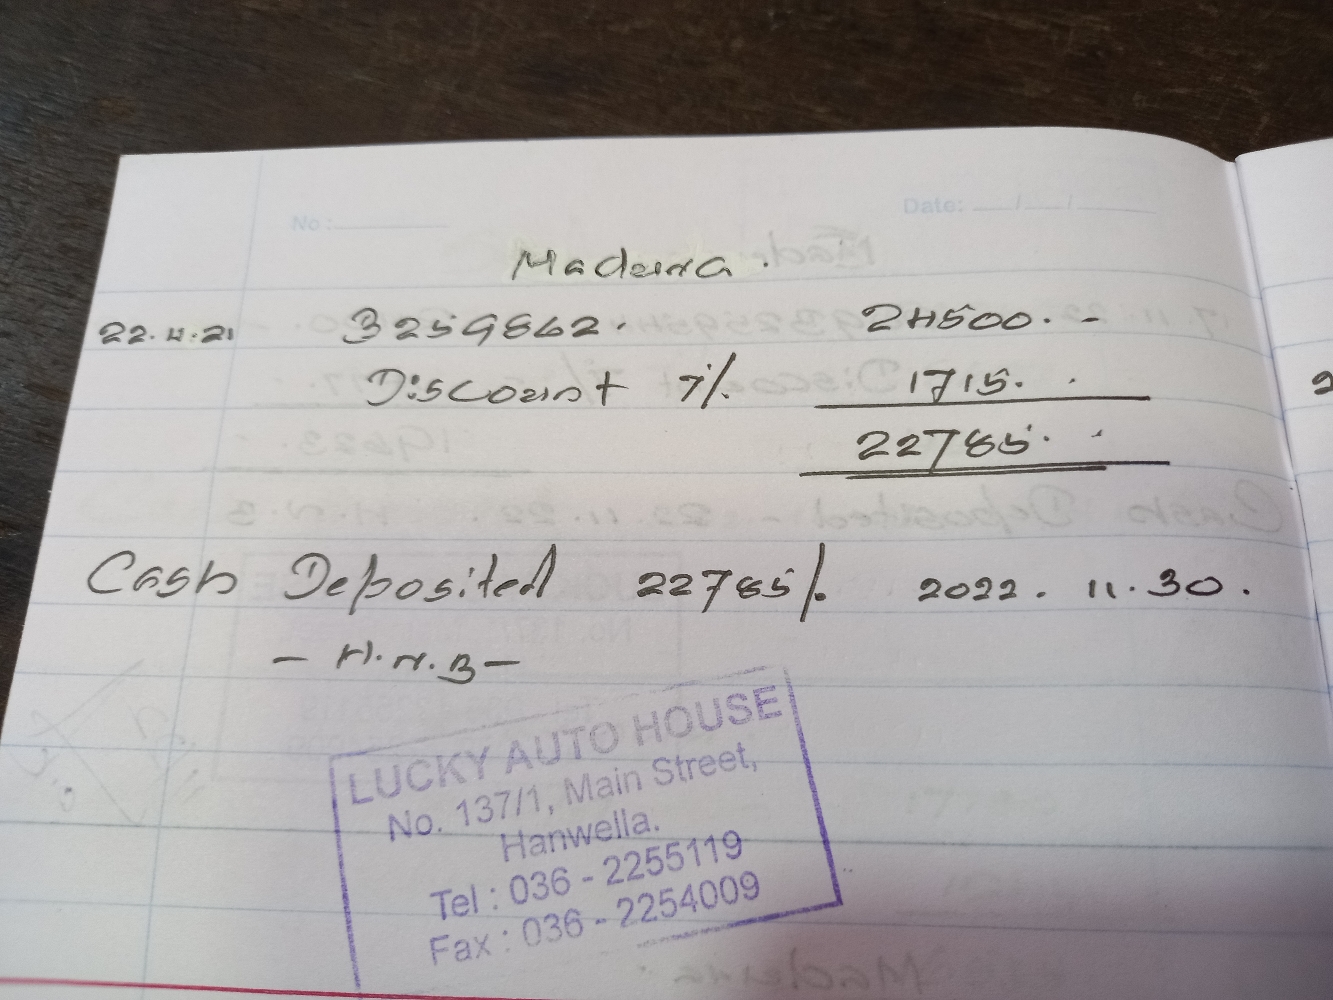 No: Date: / /
Madeira.
22.11.21 3259862. 24500.-
Discount 7%. 1715.
22785.
Cash Deposited 22785/. 2022. 11.30.
- H.N.B -
LUCKY AUTO HOUSE
No. 137/1, Main Street,
Hanwella.
Tel : 036 - 2255119
Fax : 036 - 2254009